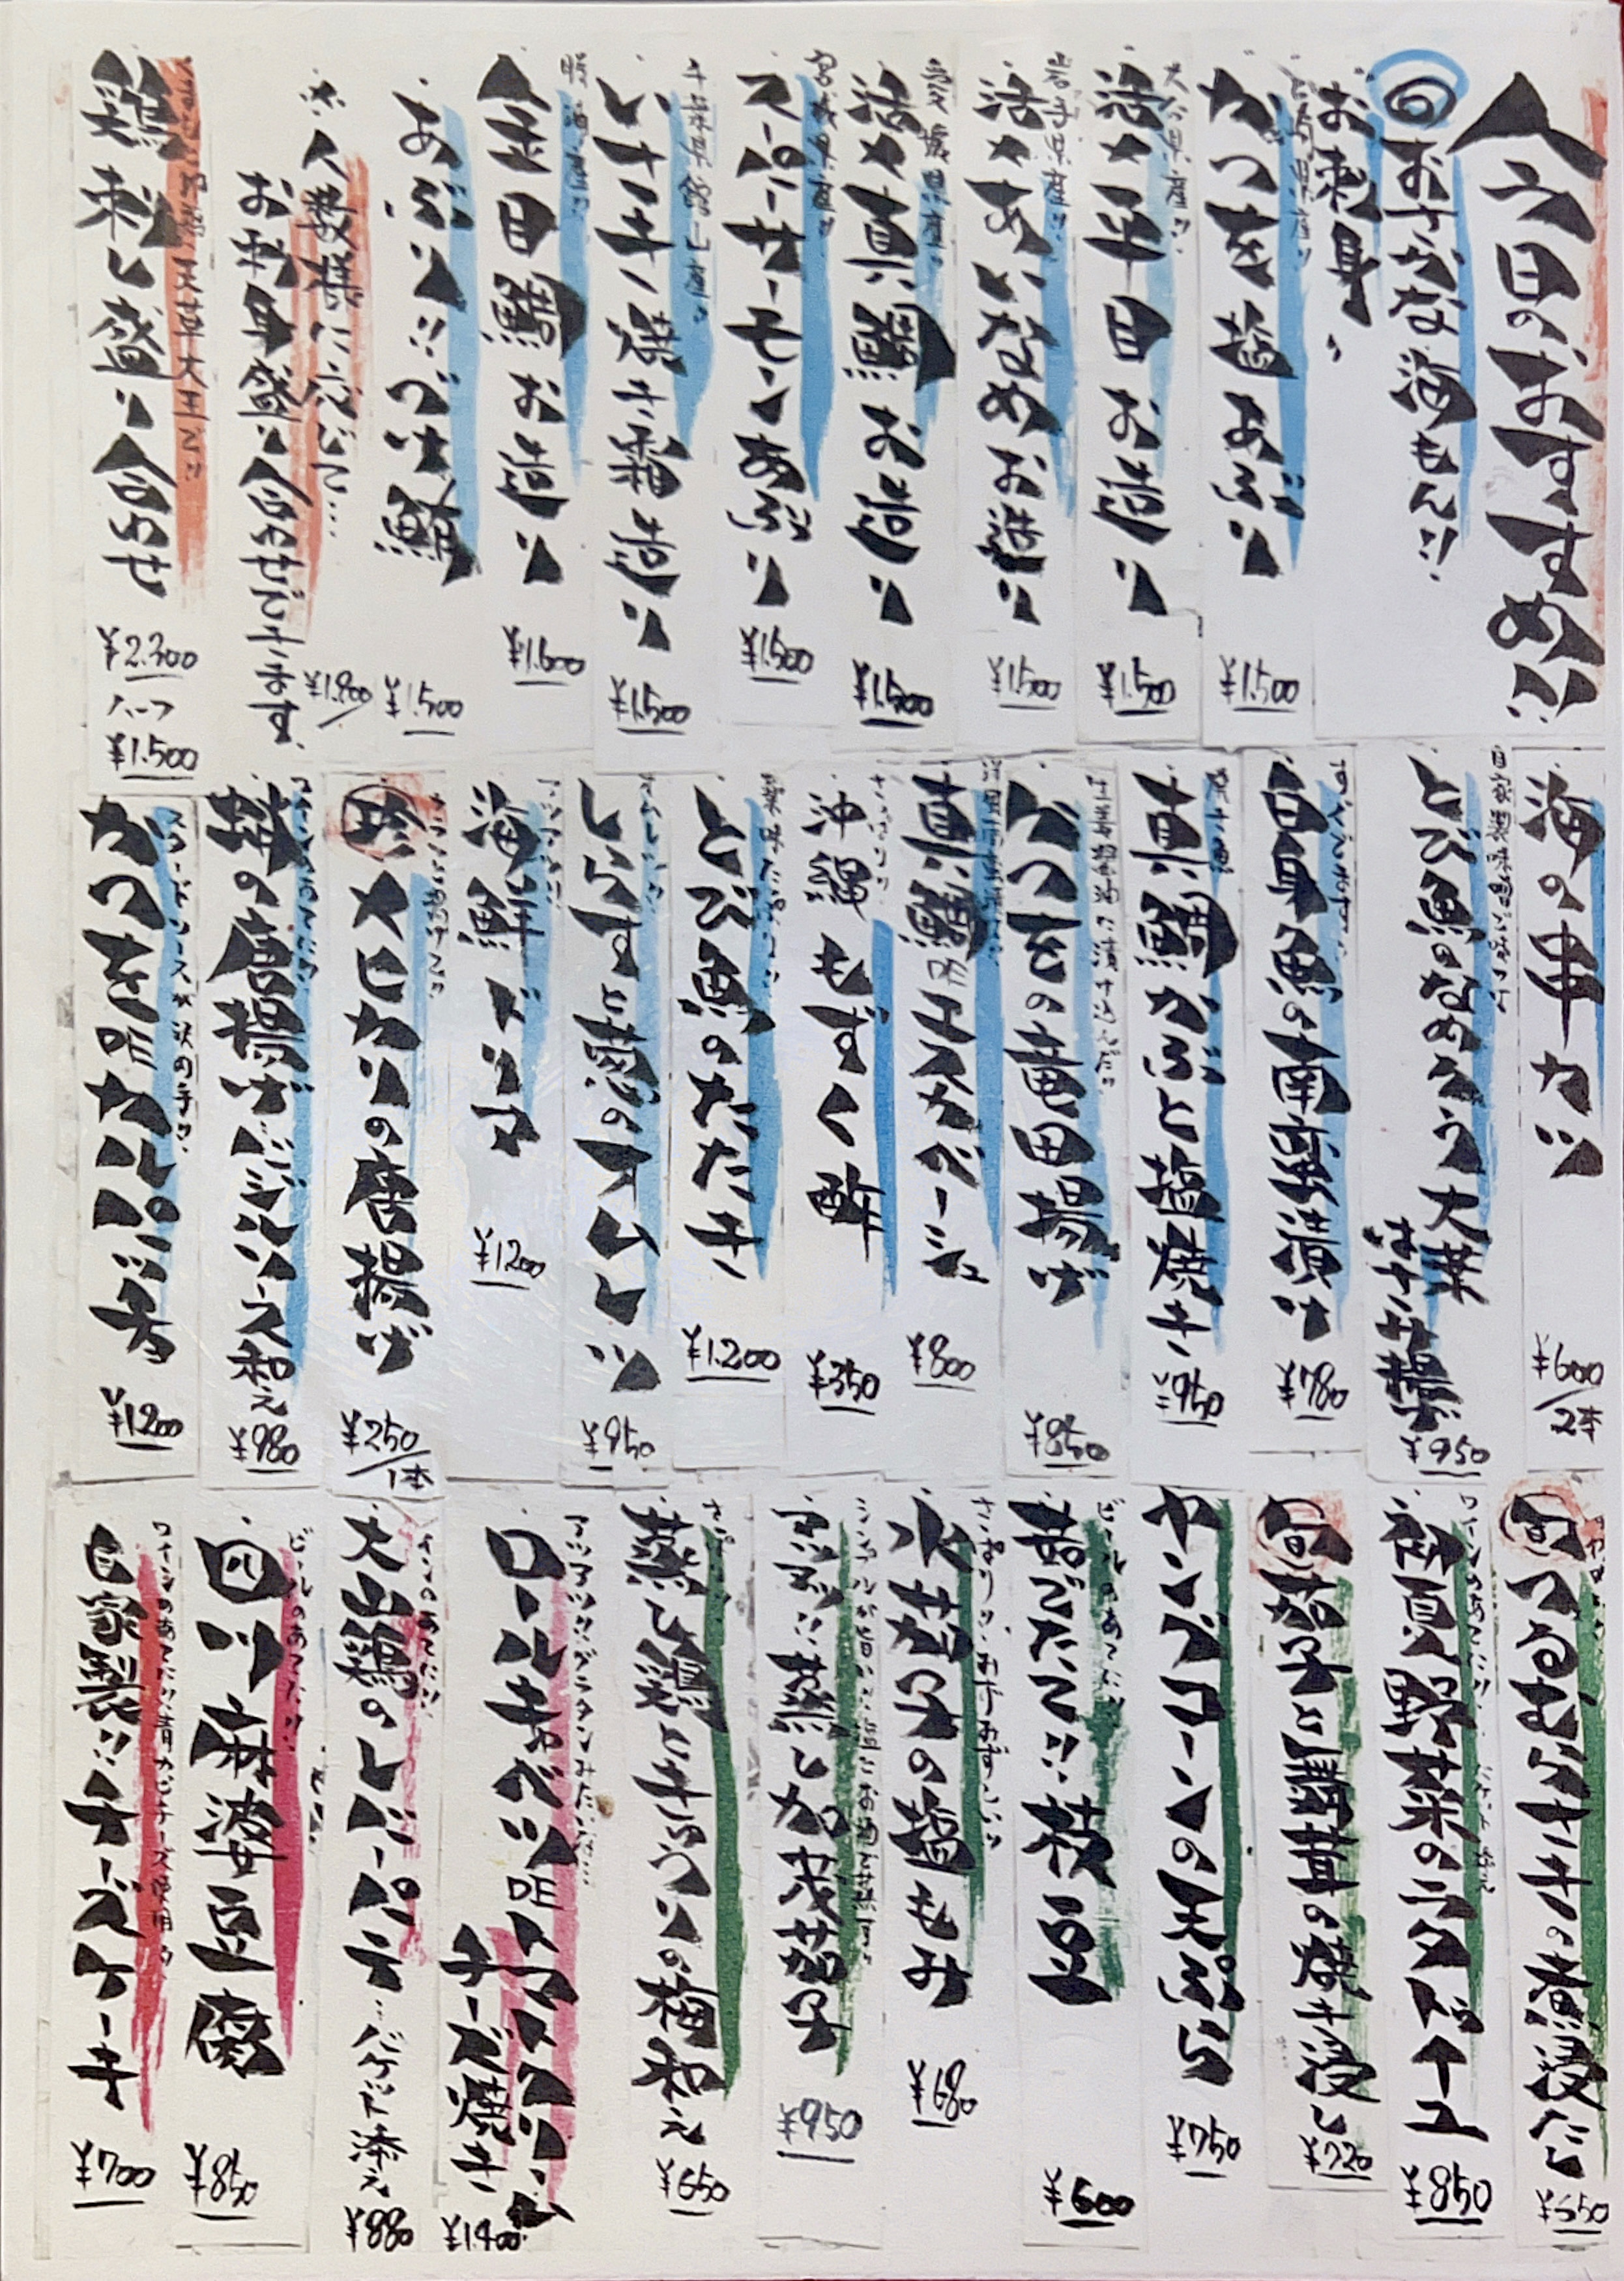 今日のおすすめ!!
旬おすすめな海もん!!
お刺身
かつを塩あぶり
¥1.500
大分県産!!
活〆平目お造り
¥1.500
岩手県産!!
活〆あいなめお造り
¥1.500
愛媛県産!!
活〆真鯛お造り
¥1.500
宮城県産!!
スーパーサーモンあぶり
¥1.500
千葉県館山産!!
いサキ焼き霜造り
¥1.500
金目鯛お造り
¥1.600
あぶり!!づけ鮪
¥1.500
※人数様に応じて…
お刺身盛り合わせできます。
¥1.900/
天草大王で!!
鶏刺し盛り合わせ
¥2.300
ハーフ
¥1.500
海の串カツ
¥600/2本
自家製味噌で味つけ
とび魚のなめろう大葉はさみ揚げ
¥950
白身魚の南蛮漬け
¥780
真鯛かぶと塩焼き
¥950
生姜醤油に漬け込んだ!!
かつをの竜田揚げ
¥850
真鯛DEエスカベーシュ
¥800
さっぱり!!
沖縄もずく酢
¥350
薬味たっぷり!!
とび魚のたたき
¥1.200
しらすと葱のオムレツ
¥950
アツアツ!!
海鮮ドリア
¥1200
珍メヒカリの唐揚げ
¥250/1本
ワインのあてに!!
蛸の唐揚げバジルソース和え
¥980
かつをDEカルパッチョ
¥1200
旬つるむらさきの煮浸たし
¥550
ワインのあてに!!
初夏野菜のラタトゥイユ
¥850
旬茄子と占地茸の焼き浸し
¥720
ヤングコーンの天ぷら
¥750
ビールのあてに!!
茹でたて!!枝豆
¥600
さっぱり!!
水茄子の塩もみ
¥680
蒸し加茂茄子
¥950
さっぱり!!
蒸し鶏ときゅうりの梅和え
¥650
アツアツ!!グラタンみたいな…
ロールキャベツDEトマトクリームチーズ焼き
¥1.400
ワインのあてに!!
大山鶏のレバーパテ…バケット添え
¥880
ビールのあてに!!
四川麻婆豆腐
¥850
ワインのあてに!!青カビチーズ使用
自家製!!チーズケーキ
¥700